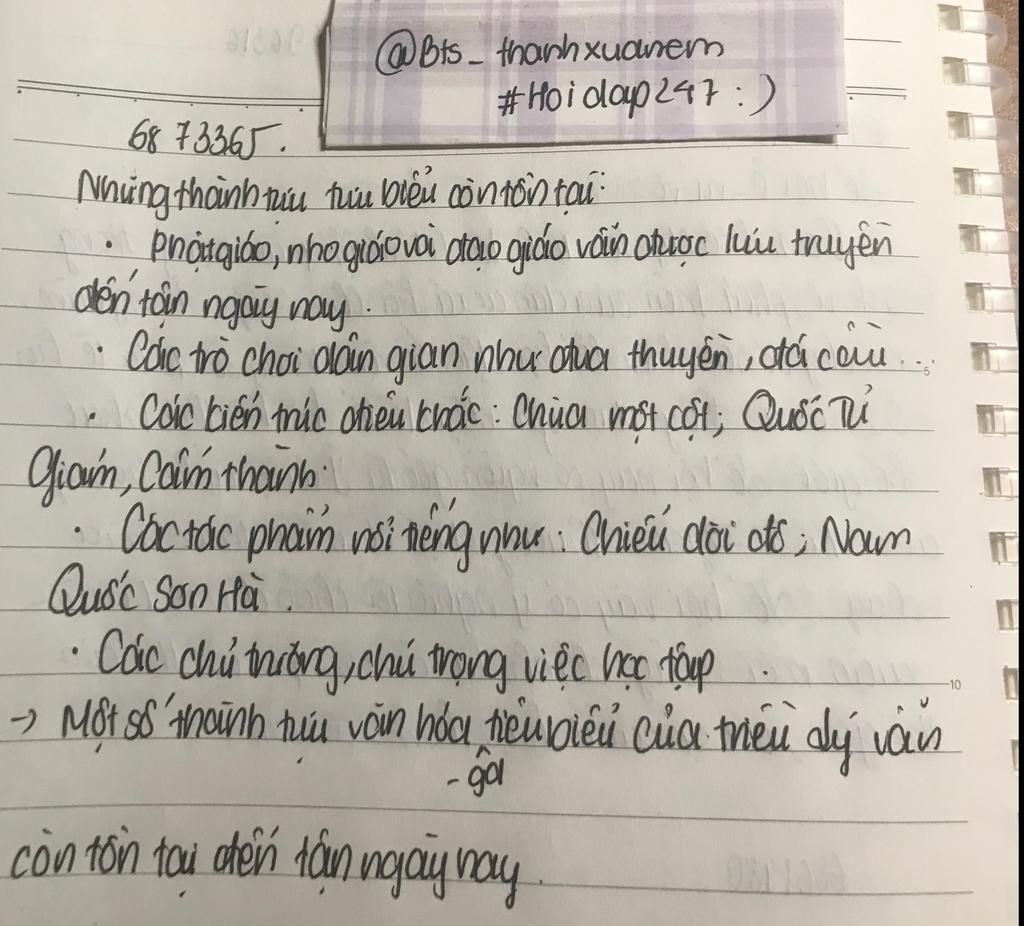 @Bts_thanhxuanem
#Hoidap247 :)
6873365.
Những thành tựu tưu biểu còn tồn tại:
• Phật giáo, nho giáo và đạo giáo vẫn được lưu truyền
đến tận ngày nay.
• Các trò chơi dân gian như đua thuyền, đá cầu...
• Các kiến trúc điêu khắc: Chùa một cột; Quốc Tử
Giám, Cấm thành.
• Các tác phẩm nổi tiếng như: Chiếu dời đô; Nam
Quốc Sơn Hà.
• Các chủ trương, chú trọng việc học tập.
→ Một số thành tựu văn hóa tiêu biểu của triều Lý vẫn
còn tồn tại đến tận ngày nay.